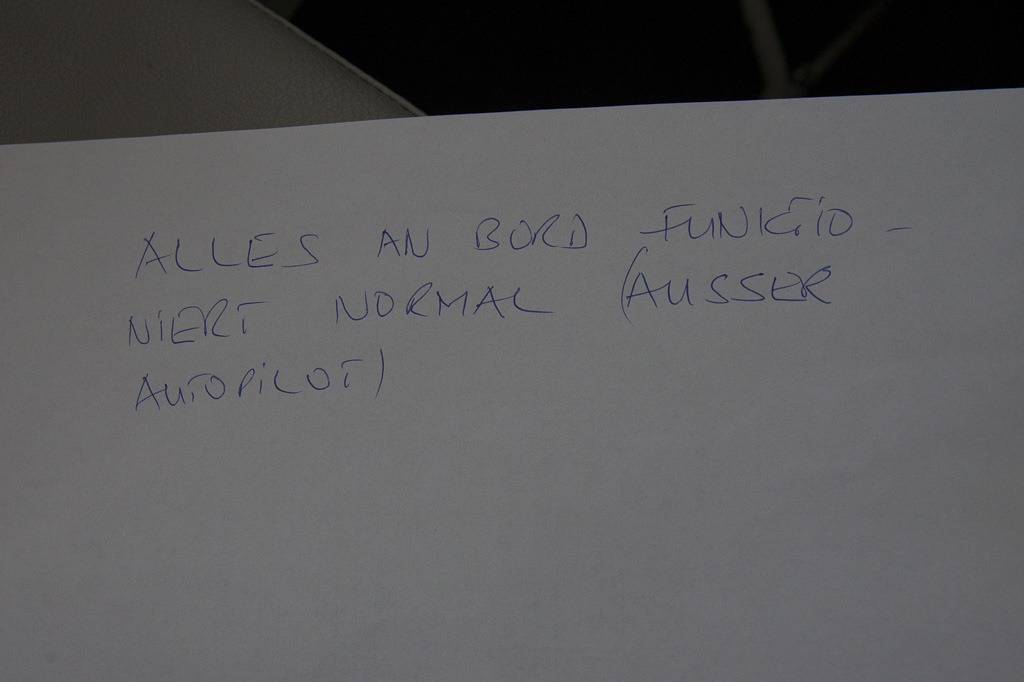 ALLES AN BORD FUNKTIO-
NIERT NORMAL (AUSSER
AUTOPILOT)